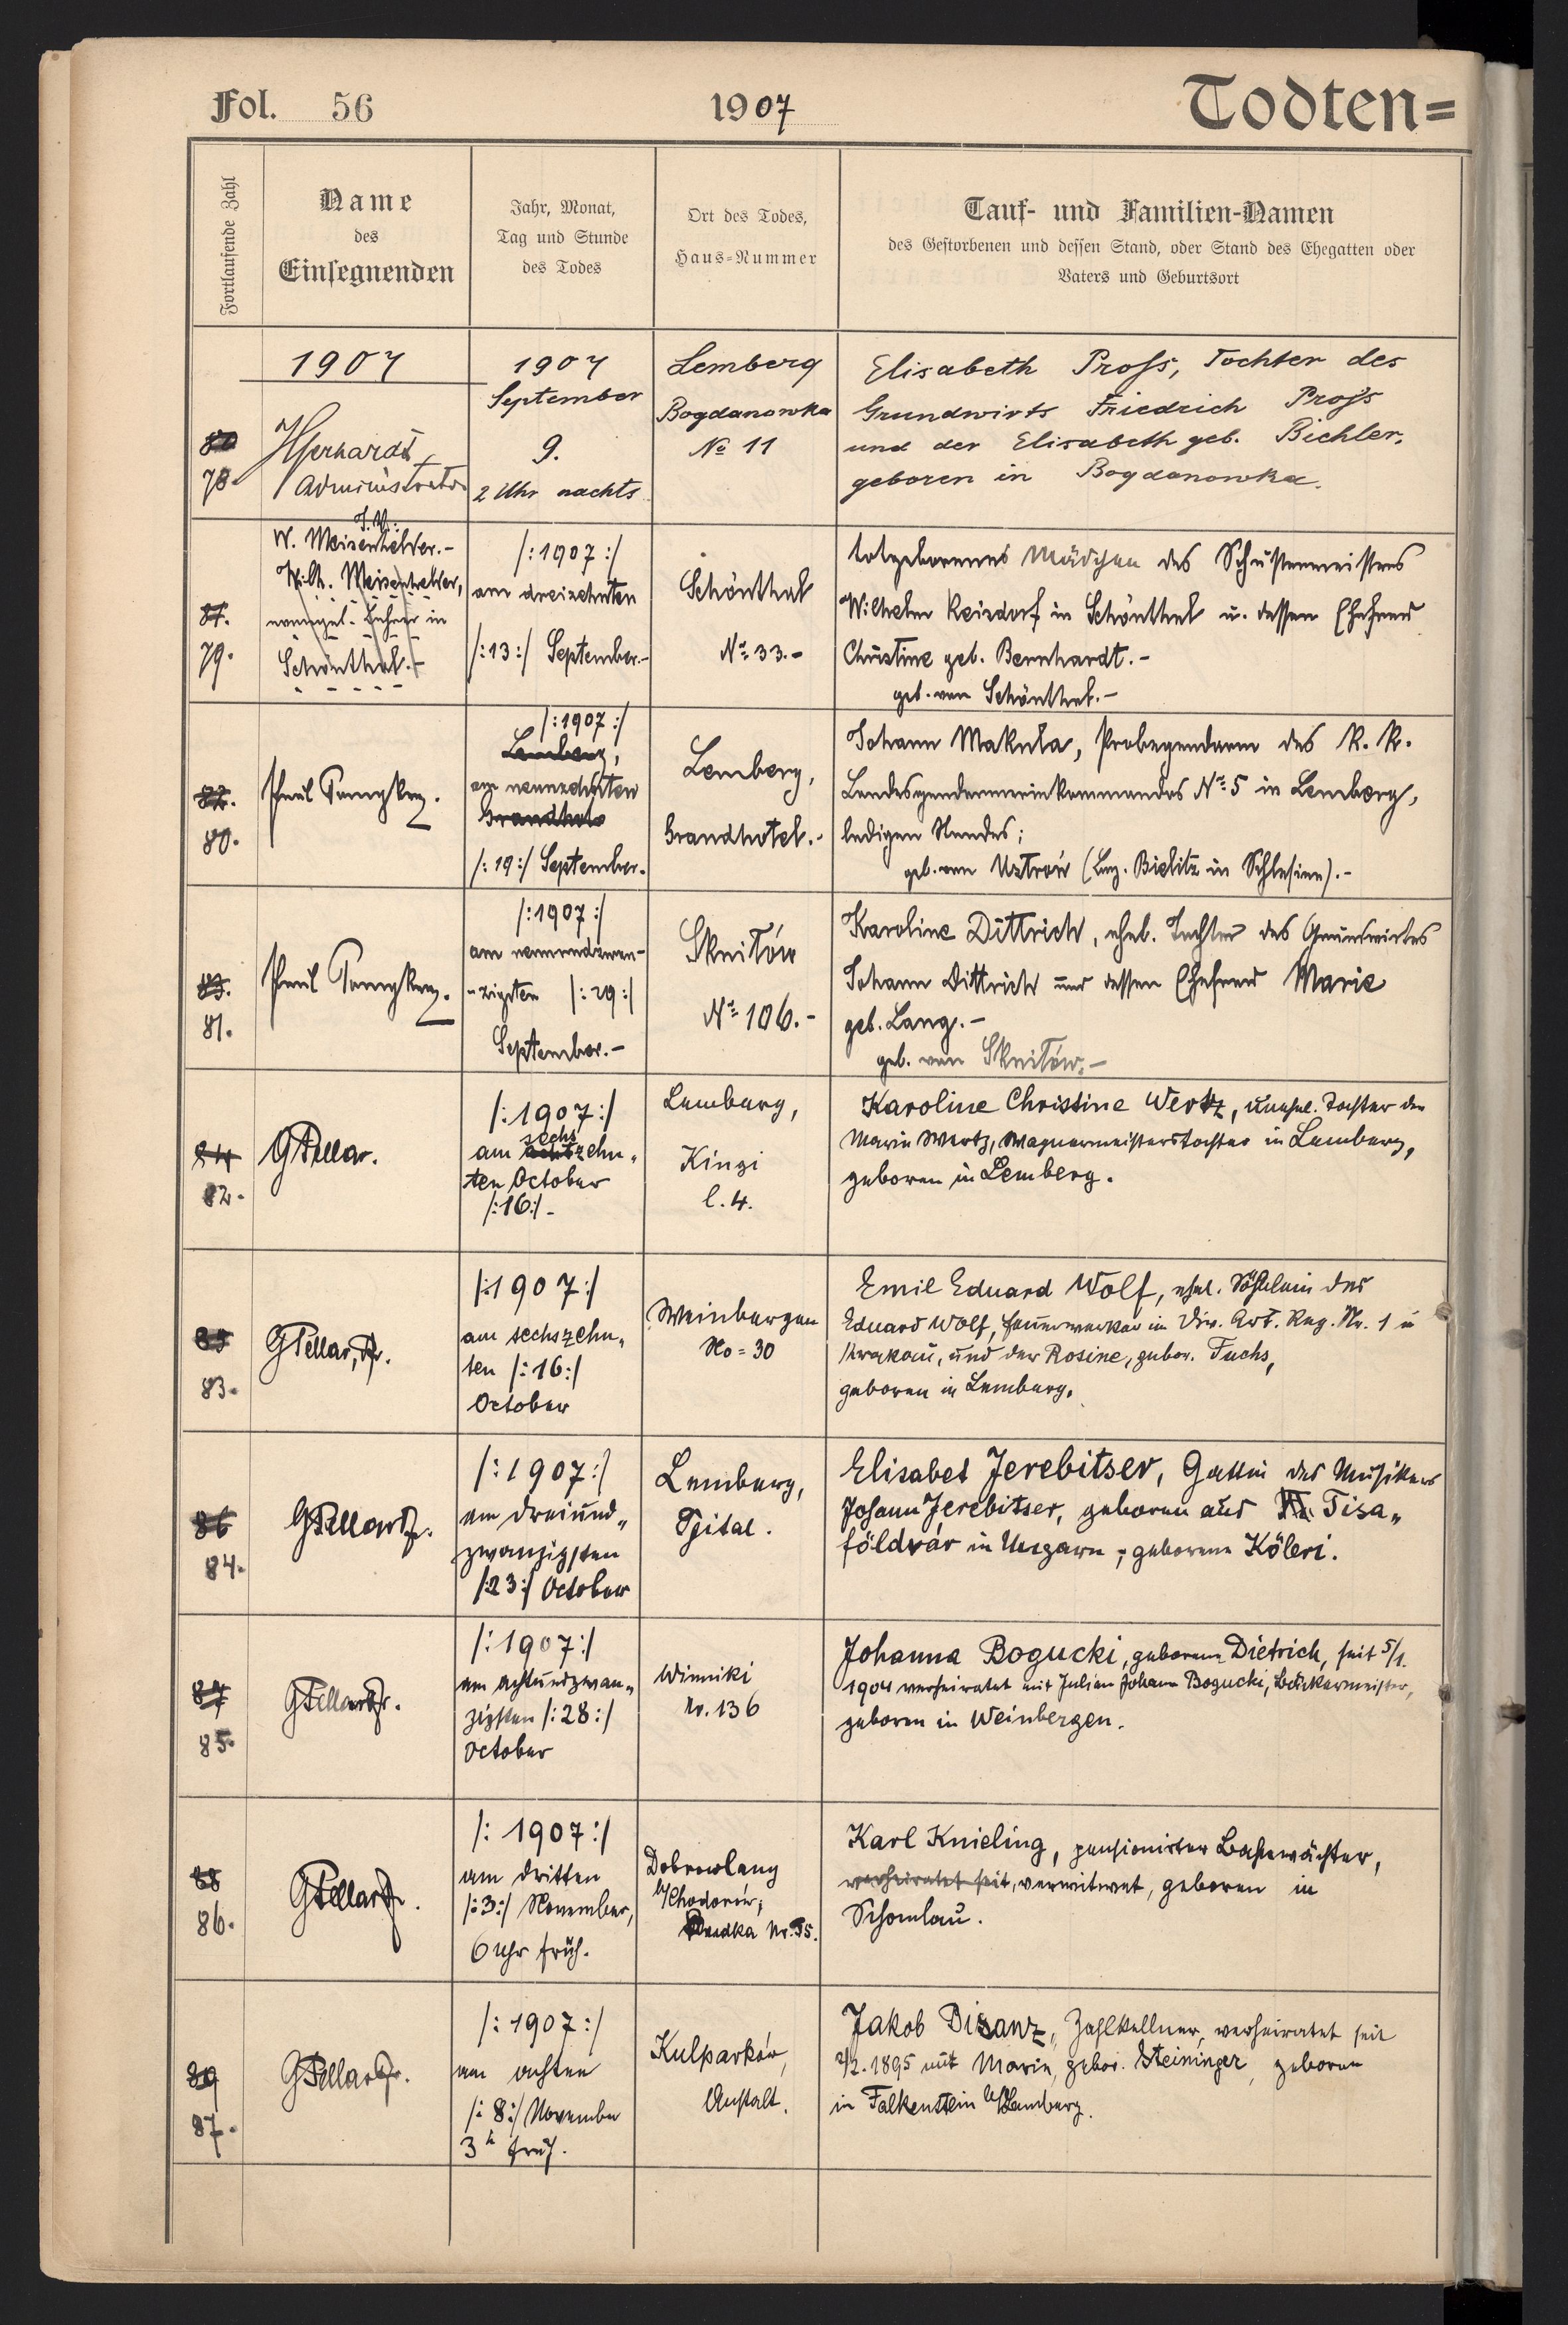 Fol. 56
1907
Todten=
Fortlaufende Zahl
Name
des
Einsegnenden
Jahr, Monat,
Tag und Stunde
des Todes
Ort des Todes,
Haus-Nummer
Tauf- und Familien-Namen
des Gestorbenen und dessen Stand, oder Stand des Ehegatten oder
Vaters und Geburtsort
80
78.
1907
Administrator
1907
September
9.
2 Uhr nachts
Lemberg
Bogdanowka
No 11
Elisabeth Proß, Tochter des
Grundwirts Friedrich Proß
und der Elisabeth geb. Bichler,
geboren in Bogdanowka.
81.
79.
J. V.:
W. Meisenhelder.-
Wilh. Meisenhelder,
evangel. Lehrer in
Schönthal.-
/:1907:/
am dreizehnten
/:13:/ September.-
Schönthal
No 33.-
totgeborenes Mädchen des Schustermeisters
Wilhelm Reisdorf in Schönthal u. dessen Ehefrau
Christine geb. Bernhardt.-
geb. von Schönthal.-
82.
80.
/:1907:/
Lemberg,
am neunzehnten
Grandhotel
/:19:/ September.
Lemberg,
Grandhotel.-
Johann Makula, Probegendarm des K. K.
Landesgendarmeriekommandos No 5 in Lemberg,
ledigen Standes;
geb. von Ustroń (Bez. Bielitz in Schlesien).-
83.
81.
/:1907:/
am neunundzwan-
zigsten /:29:/
September.-
Sknitów
No 106.-
Karoline Dittrich, ehel. Tochter des Grundwirtes
Johann Dittrich und dessen Ehefrau Marie
geb. Lang.-
geb. von Sknitów.-
84
82.
GPellar.
/:1907:/
sechs
am achtzehn-
ten October
/:16:/-
Lemberg,
Kingi
l. 4.
Karoline Christine Wertz, unehel. Tochter der
Marie Wertz, Wagnermeisterstochter in Lemberg,
geboren in Lemberg.
85
83.
GPellar, Pfr.
/:1907:/
am sechszehn-
ten /:16:/
October
Weinbergen
No = 30
Emil Eduard Wolf, ehel. Söhnlein des
Eduard Wolf, Feuerwerker im Div. Art. Reg. Nr. 1 in
Krakau, und der Rosine, gebor. Fuchs,
geboren in Lemberg.
86
84.
GPellar Pfr.
/:1907:/
am dreiund-
zwanzigsten
/:23:/ October
Lemberg,
Spital.
Elisabet Jerebitser, Gattin des Musikers
Johann Jerebitser, geboren aus Tisa-
földvár in Ungarn, geborene Köleri.
87
85.
GPellar Pfr.
/:1907:/
am achtundzwan-
zigsten /:28:/
October
Winniki
Nr. 136
Johanna Bogucki, geborene Dietrich, seit 5/1.
1904 verheiratet mit Julian Johann Bogucki, Bäckermeister,
geboren in Weinbergen.
88
86.
GPellar Pfr.
/:1907:/
am dritten
/:3:/ November,
6 Uhr früh.
b/Chodorów,
Karl Knieling, pensionierter Bahnwächter,
verheiratet seit, verwitwet, geboren in
Schomlau.
89
87.
GPellar Pfr.
/:1907:/
am achten
/:8:/ November
3h früh.
Kulparków,
Anstalt.
Jakob Disanz, Zahlkellner, verheiratet seit
2/2. 1895 mit Marie, gebor. Steininger, geboren
in Falkenstein b/Lemberg.